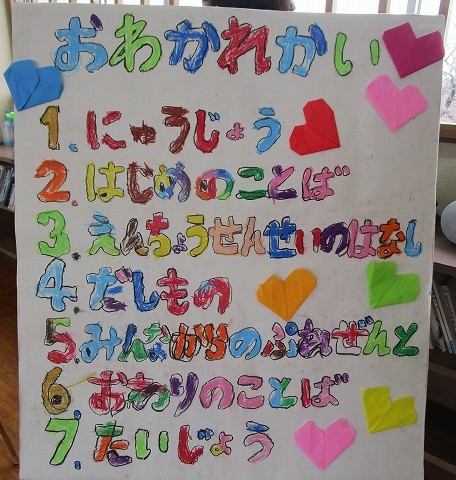 おわかれかい
1.にゅうじょう
2.はじめのことば
3.えんちょうせんせいのはなし
4.だしもの
5.みんなからのぷれぜんと
6.おわりのことば
7.たいじょう